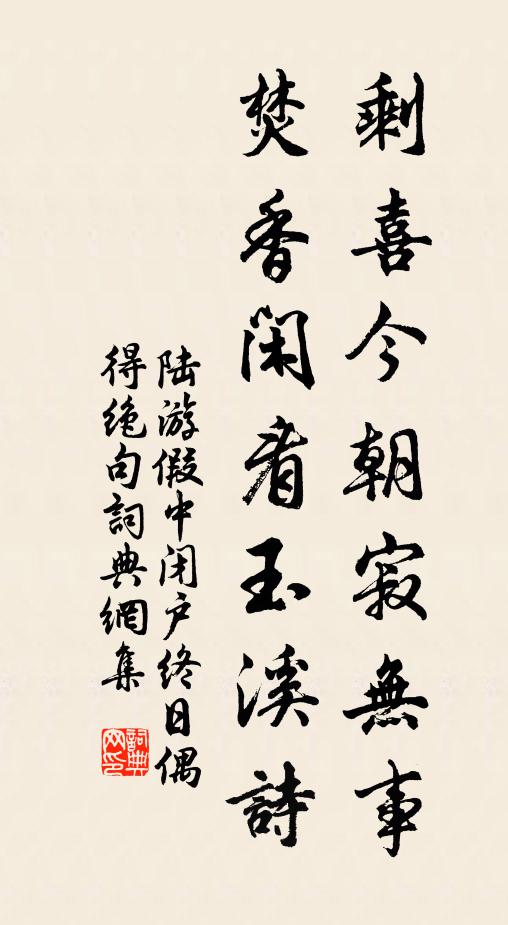 剩喜今朝寂無事
焚香閑看玉溪詩
陆游假中闭户终日偶
得絶句詞典網集
詞典网印